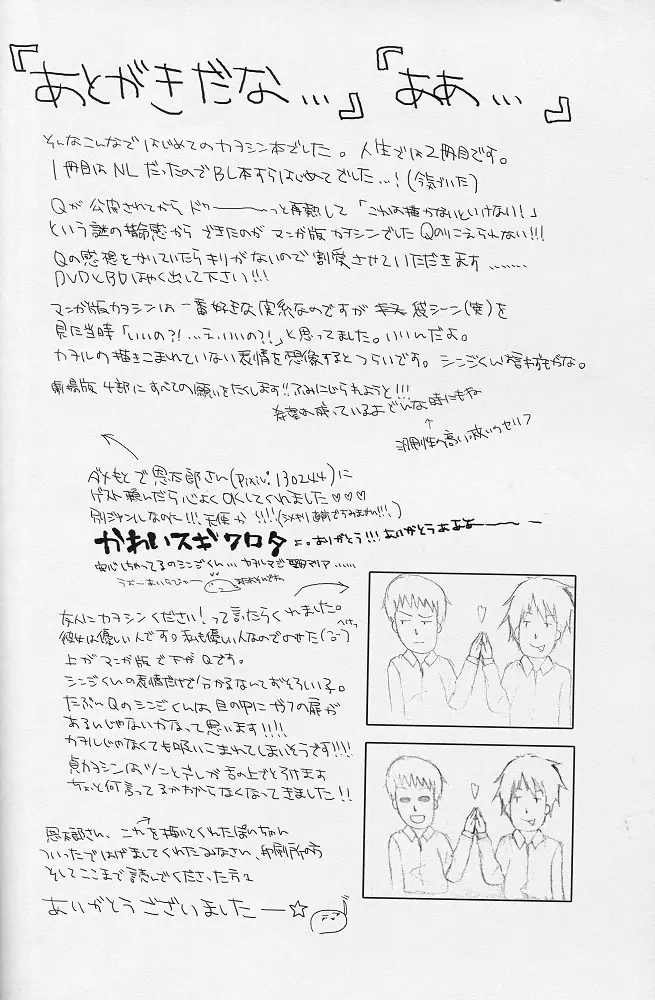 『あとがきだな…』『ああ…』
そんなこんなではじめてのカヲシン本でした。人生では2冊目です。
1冊目はNLだったのでBL本すらはじめてでした…!(今気づいた)
Qが公開されてからドゥーーーっと再熱して「これは描かないといけない!」
という謎の使命感からできたのがマンガ版カヲシンでしたQのりこえられない!!!
Qの感想をかいていたらキリがないので割愛させていただきます………
DVDとBDはやく出して下さい!!!
マンガ版カヲシンは一番好きな実系なのですがキス袋シーン(笑)を
見た当時「いいの?!…え、いいの?!」と思ってました。いいんだよ。
カヲルの描きこまれていない表情を想像するとつらいです。シンジくん
劇場版4部にすべての願いをたくします!!ふみにじられようと!!!
希望は残っているよどんな時にもね
↑
汎用性の高い救いのセリフ
ダメもとで恩太郎さん(pixiv:130244)に
ゲスト頼んだら心よくOKしてくれました♡♡♡
別ジャンルなのに!!!天使か!!!!(〆切直前ですみません!!!)
かわいスギワロタ
…ありがとう!!!ありがとうあああーーー
安心しちゃってるのシンジくん…カヲルマジ聖母マリア……
友人にカヲシンください!って言ったらくれました。
彼女は優しい人です。私も優しい人なのでのせた
上がマンガ版で下がQです。
シンジくんの表情だけで分かるなんておそろしい子。
たぶんQのシンジくんは目の中にガフの扉が
あるんじゃないかなって思います!!!!
カヲルじゃなくても吸いこまれてしまいそうです!!!
貞カヲシンはツンとデレが舌の上でとろけます
ちょっと何言ってるかわからなくなってきました!!
恩太郎さん、これを描いてくれたぽいちゃん
ついったではげましてくれたみなさん、印刷所の方
そしてここまで読んでくださった方々
ありがとうございましたー☆